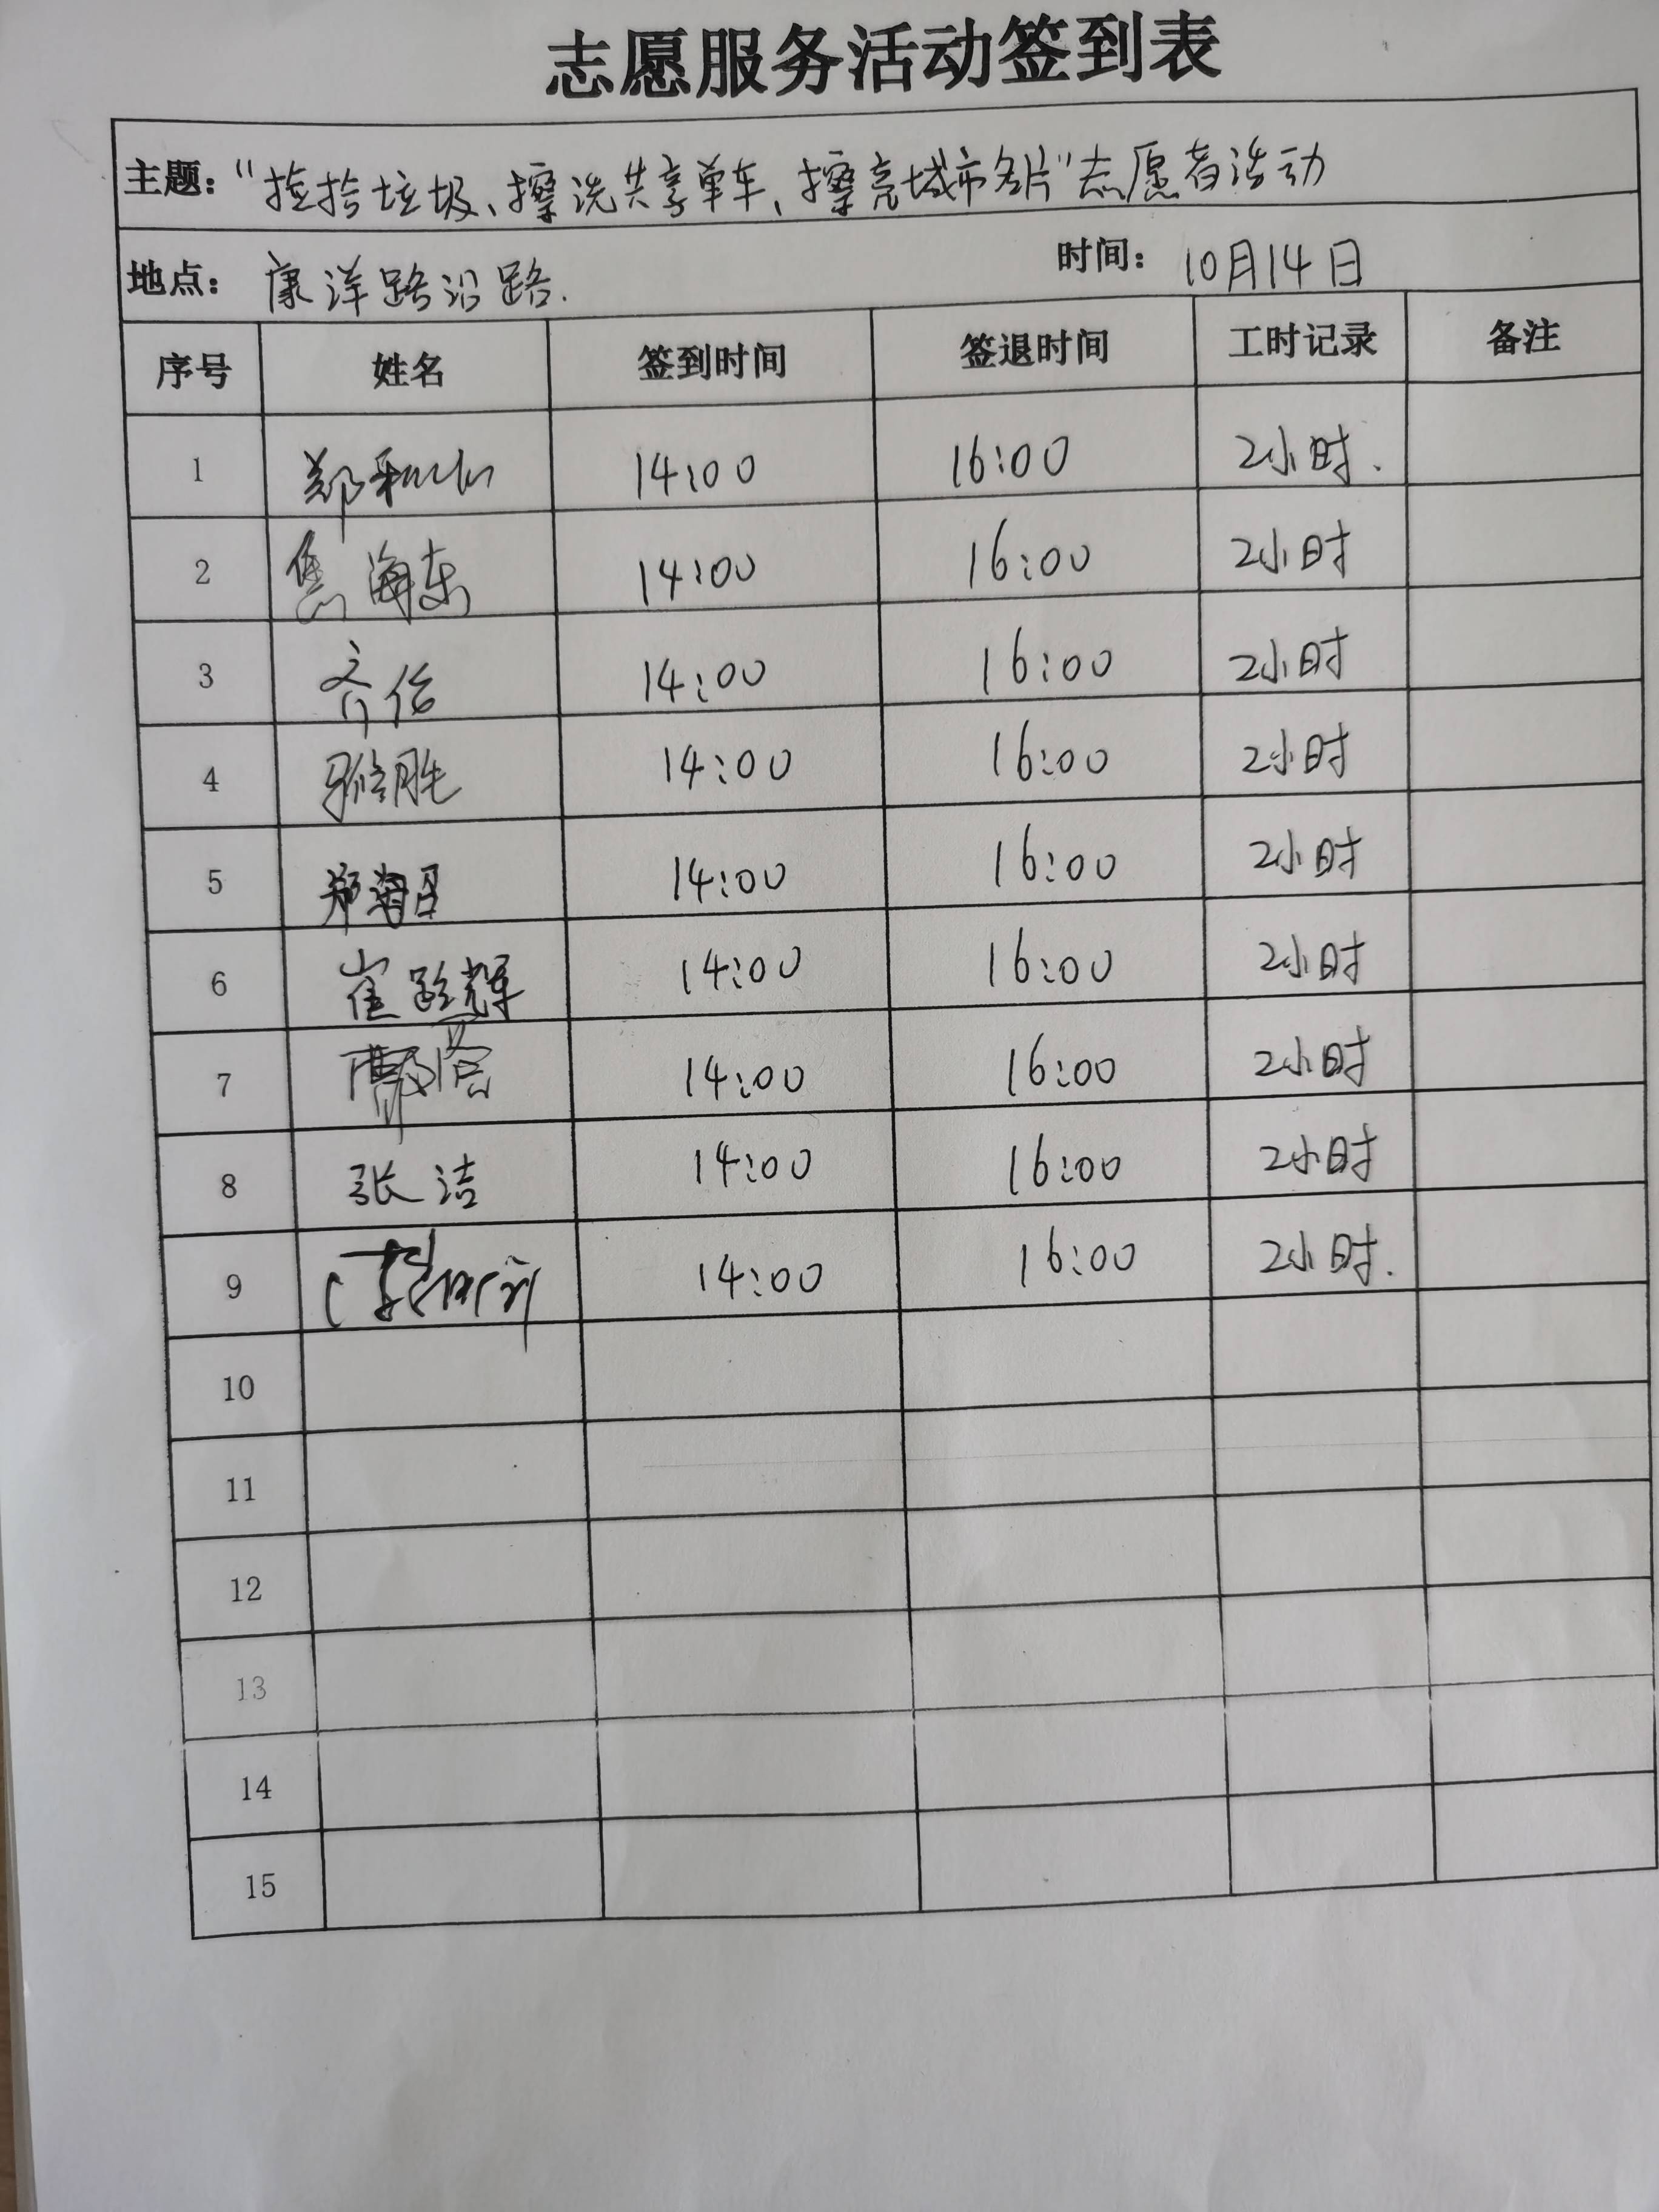 志愿服务活动签到表
主题：“捡拾垃圾、擦洗共享单车、擦亮城市名片”志愿者活动
地点： 康洋路沿路. 时间： 10月14日
序号 姓名 签到时间 签退时间 工时记录 备注
1 14:00 16:00 2小时.
2 焦海东 14:00 16:00 2小时
3 14:00 16:00 2小时
4 14:00 16:00 2小时
5 14:00 16:00 2小时
6 14:00 16:00 2小时
7 14:00 16:00 2小时
8 张洁 14:00 16:00 2小时
9 14:00 16:00 2小时.
10
11
12
13
14
15